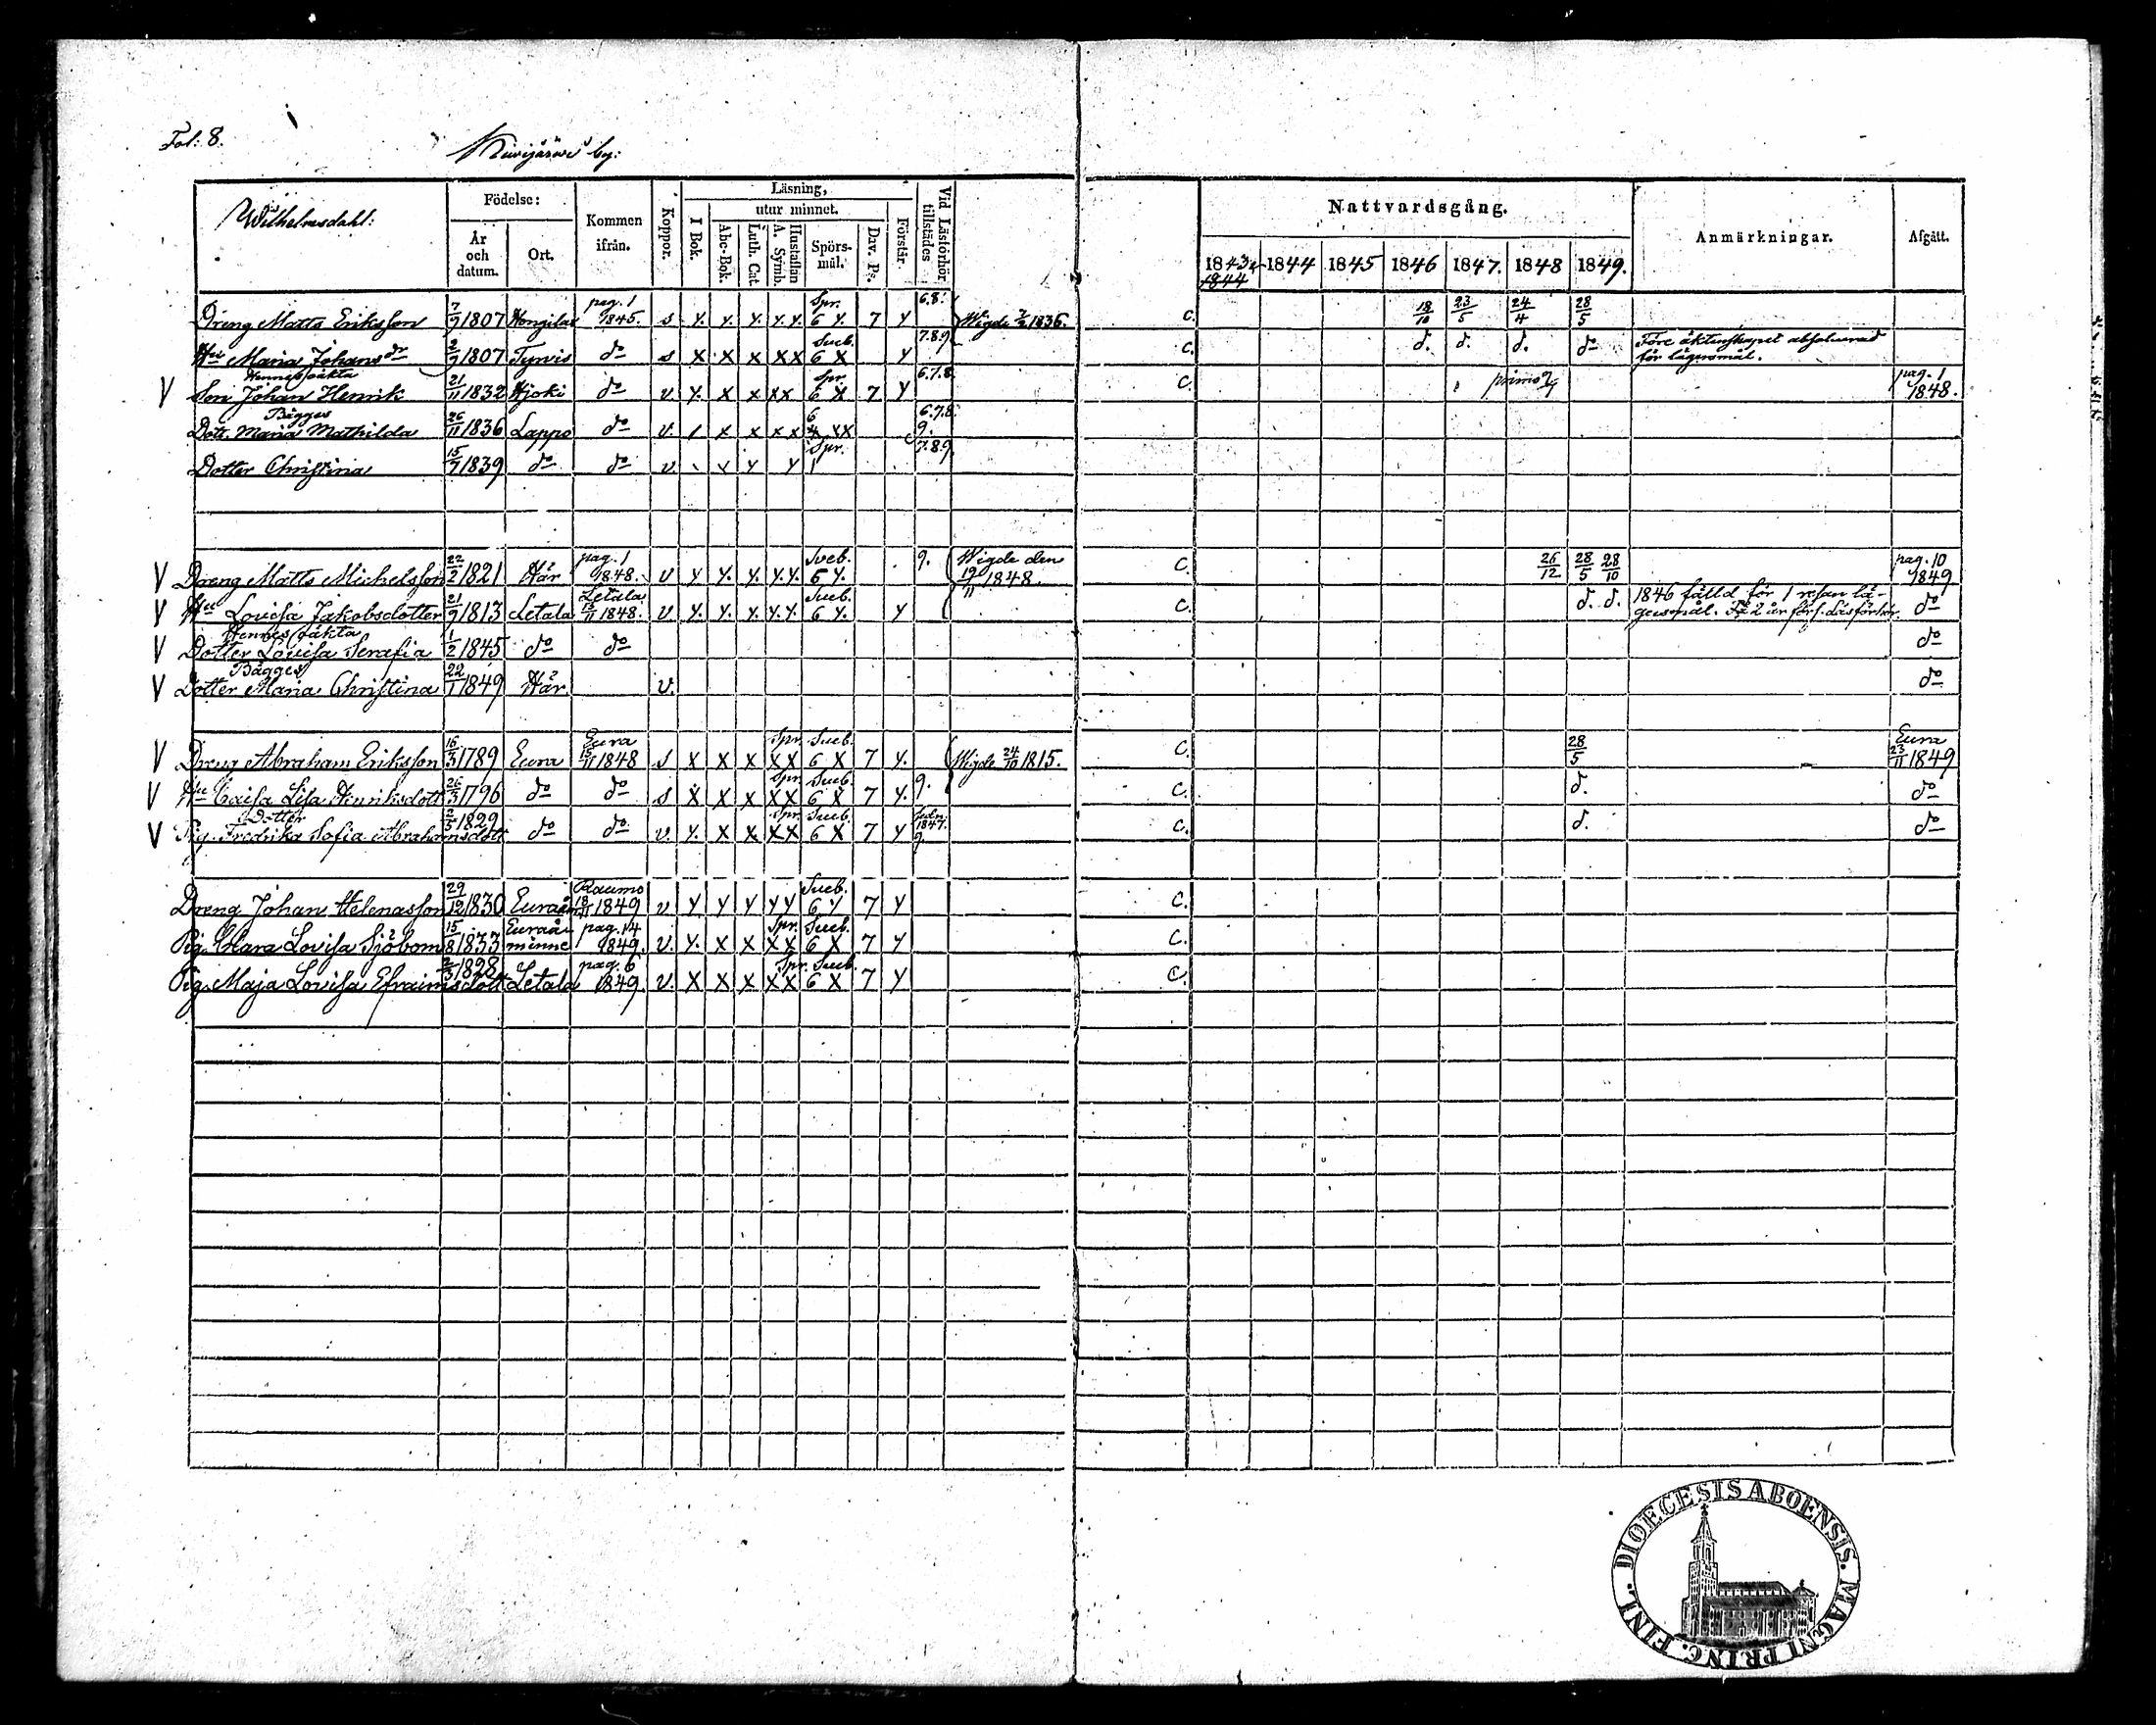 Fol: 8.
Kivijärvi by:
Wilhelmsdahl:
Födelse:
År och datum.
Ort.
Kommen ifrån.
Koppor.
Läsning,
I Bok.
utur minnet.
Abc-Bok.
Luth. Cat.
Hustaflan A. Symb.
Spörs-mål.
Dav. Ps.
Förstår.
Vid Läsförhör tillstädes
Nattvardsgång.
1843 1844 1845 1846 1847. 1848 1849.
1844
Anmärkningar.
Afgått.
Dreng Matts Eriksson 7/9 1807 Hongilax pag. 1 1845. s y. y. y. y. y. Spr. 6 y. 7 y 6.8. Wigde 1836. C. 18/10 23/5 24/4 28/5
Hu Maria Johansdr 2/9 1807 Tyrvis do s x x x x x Sveb. 6 x y 7.8.9 C. d. d. d. do Före äktenskapet absolverad
för lägersmål.
Hennes oäkta
V Son Johan Henrik 21/11 1832 Hjoki do v. y. x x x x Spr. 6 x 7 y 6.7.8. C. primo pag. 1 1848.
Bägges
Dott. Maria Mathilda 26/11 1836 Lappo do v. x x x x 6 4 xx 6.7.8. 9.
Dotter Christina 15/7 1839 do do v. Spr. 7.8.9
V Dreng Matts Michelsson 22/2 1821 Här pag. 1 1848. v y y. y. y. y. Sveb. 6 y. 9. Wigde den 19/11 1848. C. 26/12 28/5 28/10 pag. 10 1849
V Hu Lovisa Jakobsdotter 21/9 1813 Letala Letala 15/11 1848. v y. y. y. y. y. Sveb. 6 y. y C. d. d. 1846 fälld för 1 resan lä-
gersmål. 2 år förs. Läsförhör. do
Hennes oäkta
V Dotter Lovisa Serafia 1/2 1845 do do do
Bägges
V Dotter Maria Christina 22/1 1849 Här v. do
V Dreng Abraham Eriksson 16/3 1789 Eura Eura 15/11 1848 s x x x x x Spr. Sveb. 6 x 7 y. Wigde 24/10 1815. C. 28/5 Eura 23/11 1849
V Hu Caisa Lisa Henriksdott 26/3 1796 do do s x x x x x Spr. Sveb. 6 x 7 y. 9. C. d. do
Dotter
V Pig. Fredrika Sofia Abrahamsdott 2/5 1829 do do v. y. x x x x Spr. Sveb. 6 x 7 y 1847. 9. C. d. do
Dreng Johan Helenasson 29/12 1830 Euraåm Raumo 18/11 1849 v y y y y y Sveb. 6 y 7 y C.
Pig. Clara Lovisa Sjöbom 15/8 1833 Euraå-minne pag. 14 1849. v. y. x x x x Spr. Sveb. 6 x 7 y C.
Pig. Maja Lovisa Efraimsdott 2/3 1828 Letala pag. 6 1849. v. x x x x x Spr. Sveb. 6 x 7 y C.
DIOECESIS ABOENSIS. MAGNI PRINC. FINL.